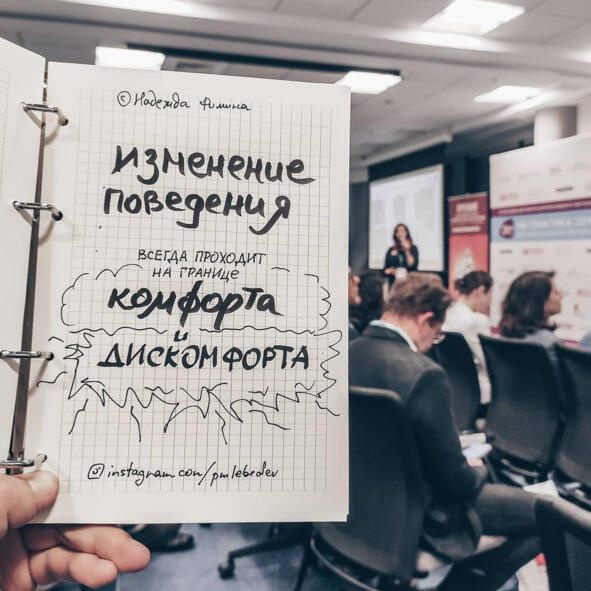 © Надежда Фомина
изменение
поведения
ВСЕГДА ПРОХОДИТ
НА ГРАНИЦЕ
комфорта
и
ДИСКОМФОРТА
instagram.com/pmlebedev